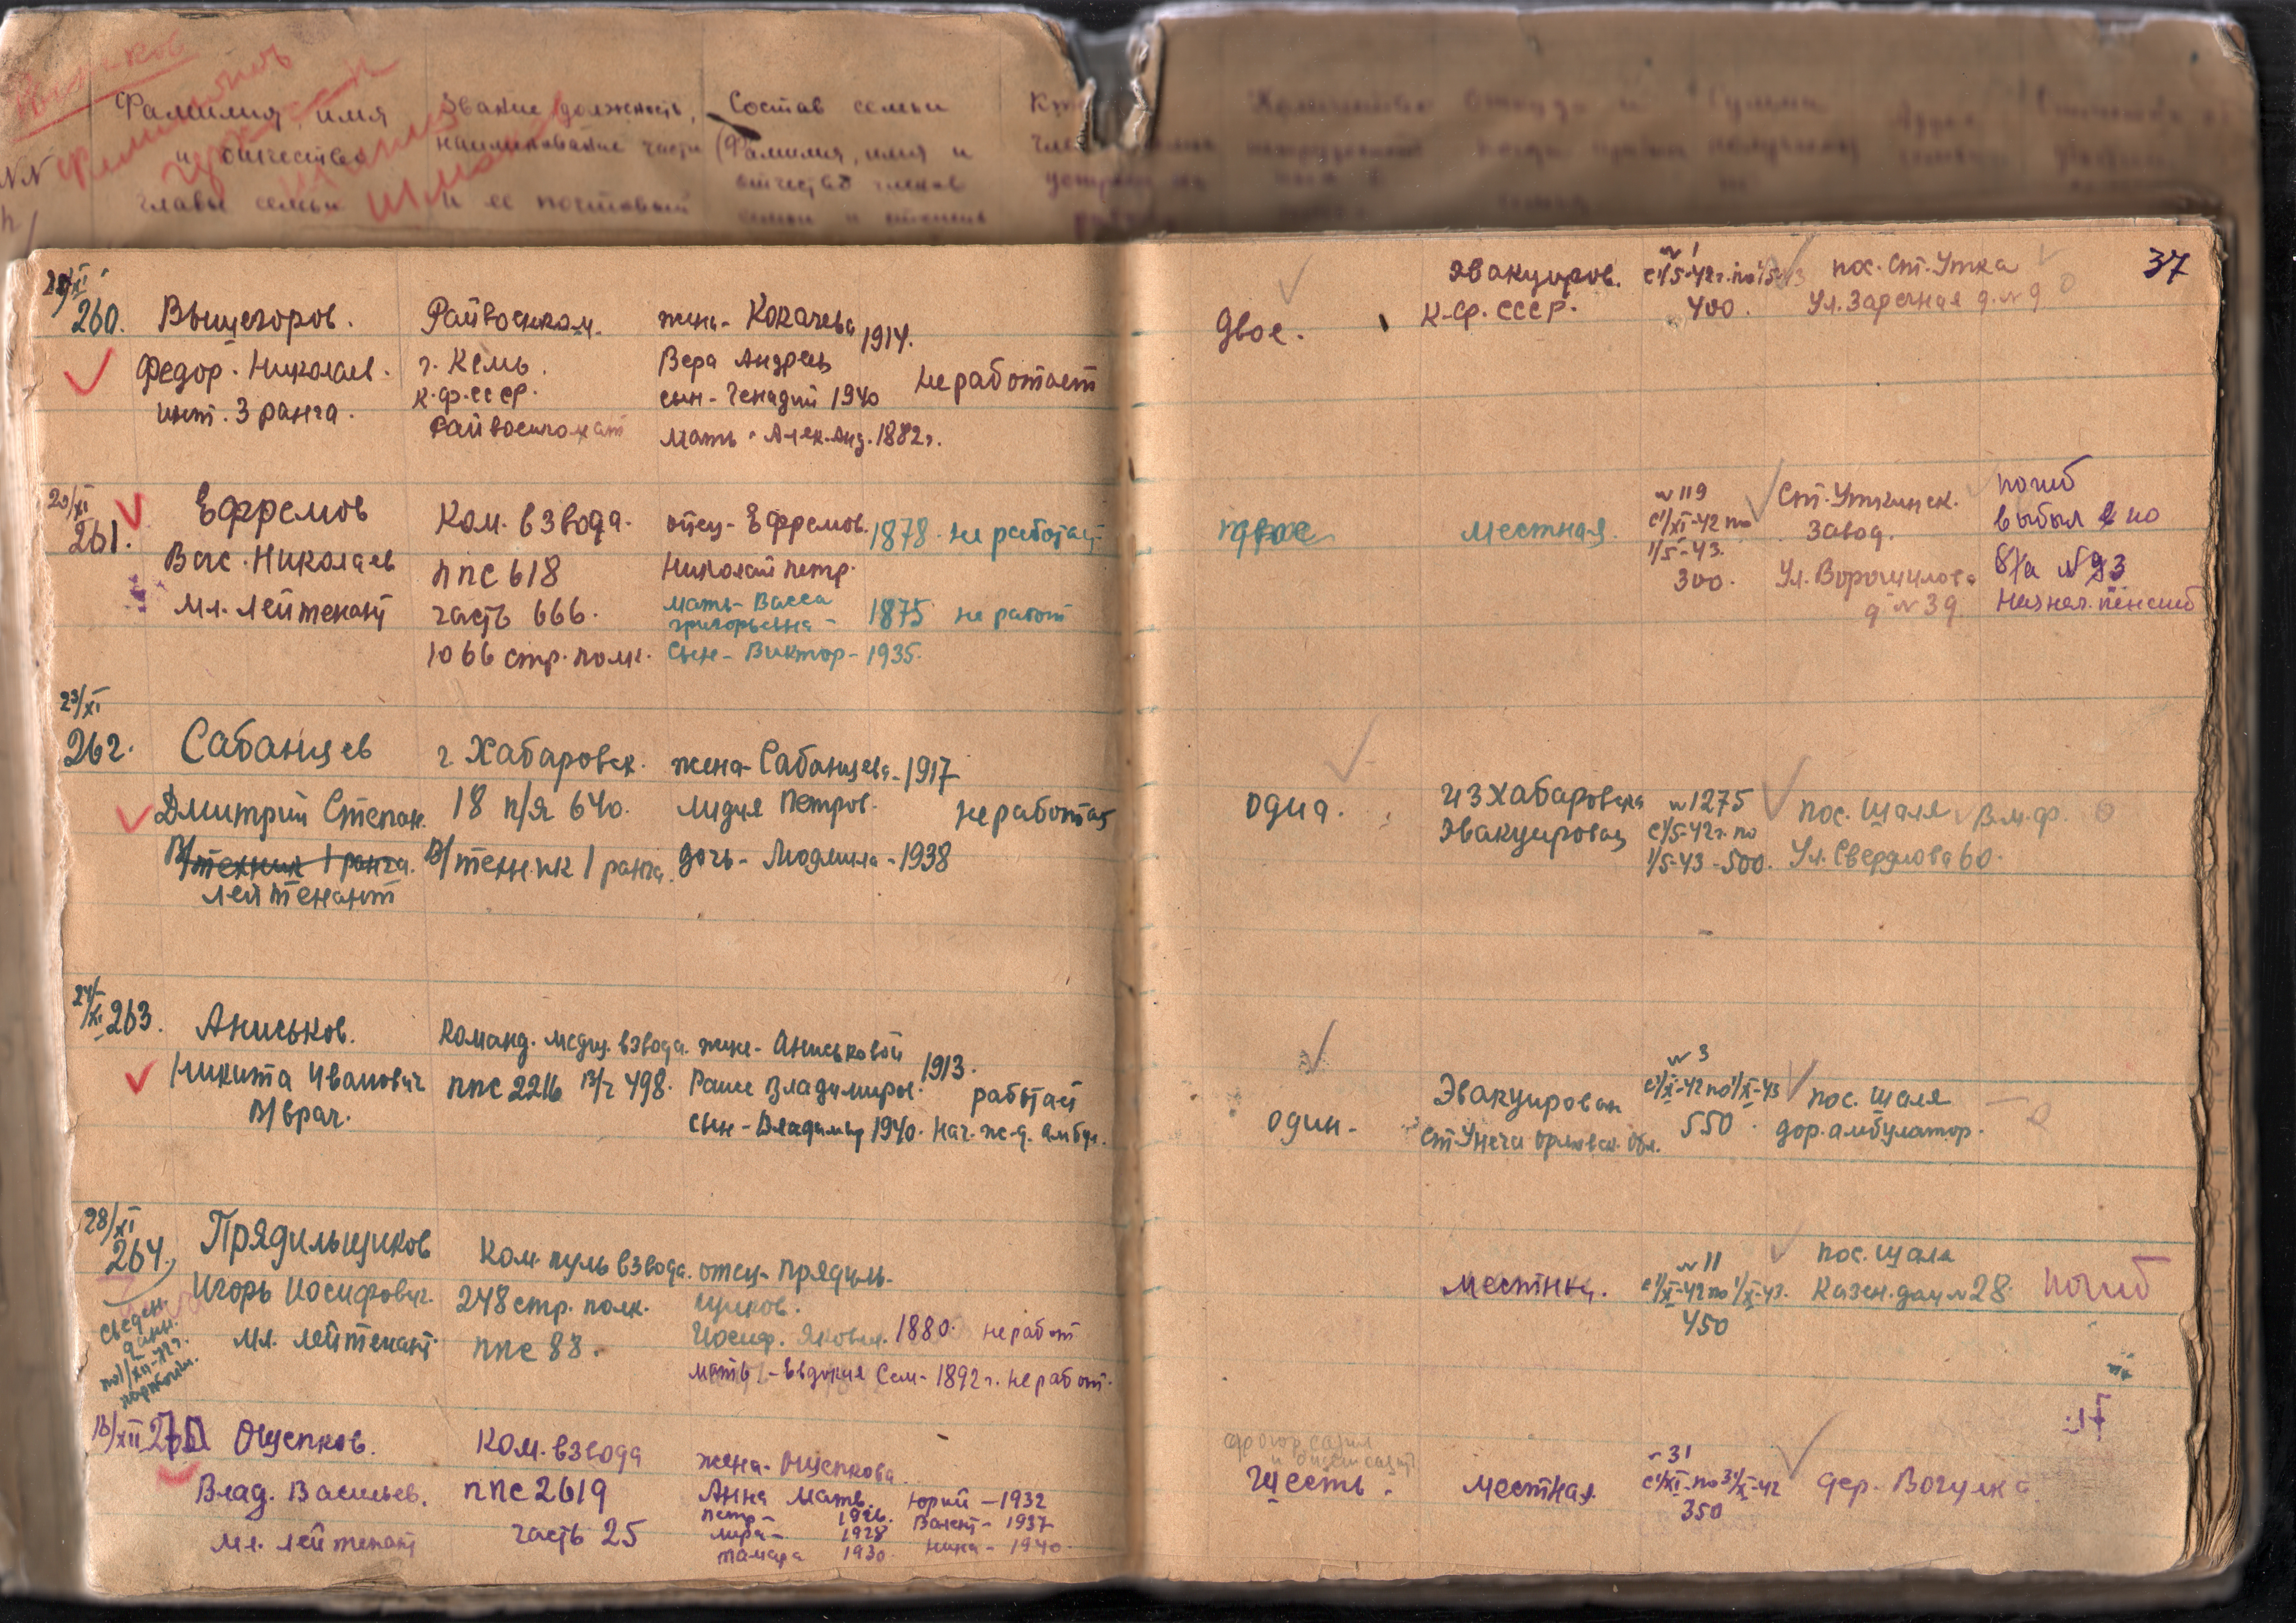 Фамилия, имя
и отчество
главы семьи
Звание, должность,
наименование части
и ее почтовый
Состав семьи
(Фамилия, имя и
отчество членов
семьи и
37
260. Вышегоров.
Федор. Николаев.
инт. 3 ранга.
Райвоенком.
г. Кемь.
К.ф.ССР.
Райвоенкомат
жена - Кокачева 1914.
Вера Андреев
сын - Генадий 1940
не работает
мать - Алек. Анд. 1882 г.
двое.
эвакуиров.
К-Ф. СССР.
№ 1
400.
пос. Ст. Утка
Ул. Заречная д. № 9
20/XI
261.
Ефремов
Вас. Николаев
мл. лейтенант
Ком. взвода.
ппс 618
часть 666.
1066 стр. полк.
отец - Ефремов. 1878. не работает
Николай петр.
мать - Васса
григорьевна - 1875 не работ
Сын - Виктор - 1935.
местная.
№ 119
с 1/XI-42 по
1/5-43.
300.
Ст. Уткинск.
завод.
Ул. Ворошилова
д № 39
погиб
выбыл по
№ 93
Назнач. пенсию
23/XI
262.
Сабанцев
Дмитрий Степан.
В/техник 1 ранга.
лейтенант
г Хабаровск.
18 п/я 640.
В/техник 1 ранга.
жена - Сабанцева - 1917
лидия Петров.
не работает
дочь - Людмила - 1938
одна.
из Хабаровска
Эвакуирован
№ 1275
с 1/5-42 г. по
1/5-43 - 500.
пос. Шаля В.м.ф.
Ул. Свердлова 60.
24/XI
263. Аниськов.
Никита Иванович
В/врач.
Команд. медиц. взвода.
ппс 2216 В/ч 498.
жене - Аниськовой 1913.
Раисе Владимиров.
работает
сын - Владимир 1940. нач. ж-д. амбул.
один.
Эвакуирован
ст Унеча орловск. обл.
№ 3
с 1/X-42 по 1/X-43
550.
пос. Шаля
дор. амбулатор.
28/XI
264.
Прядильщиков
Игорь Иосифович.
мл. лейтенант
сведен.
Ком. пуль взвода.
248 стр. полк.
ппс 88.
отец - Прядиль-
щиков.
Иосиф. Яковл. 1880. не работ
мать - Евдокия Сем - 1892 г. не работ.
местная.
№ 11
с 1/X-42 по 1/X-43.
450
пос. Шаля
Казен. дом № 28.
погиб
Ощепков.
Влад. Васильев.
мл. лейтенант
Ком. взвода
ппс 2619
часть 25
жена - Ощепкова.
Анна Матв. Юрий - 1932
Петр - 1926. Валент - 1937
лира - 1928 Нина - 1940.
Тамара 1930.
Шесть.
местная
№ 31
с 1/XI-по 31/X-42
350
дер. Вогулка